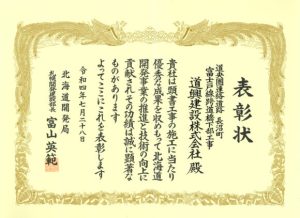 表彰状
道央圏連絡道路 長沼町
富士戸線跨道橋下部工事
道興建設株式会社 殿
貴社は頭書工事の施工に当たり
優秀な成果を収めもって北海道
開発事業の推進と技術の向上に
貢献されその功績は誠に顕著な
ものがあります
よってここにこれを表彰します
令和四年七月二十八日
北海道開発局
札幌開発建設部長 富山英範